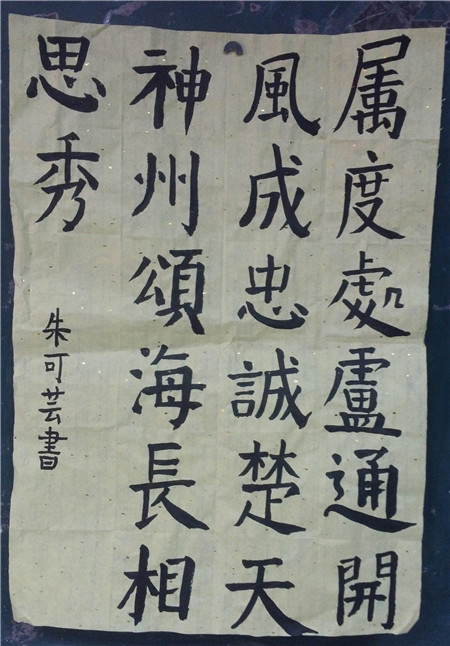 属度處盧通開
風成忠誠楚天
神州頌海長相
思秀
朱可芸書